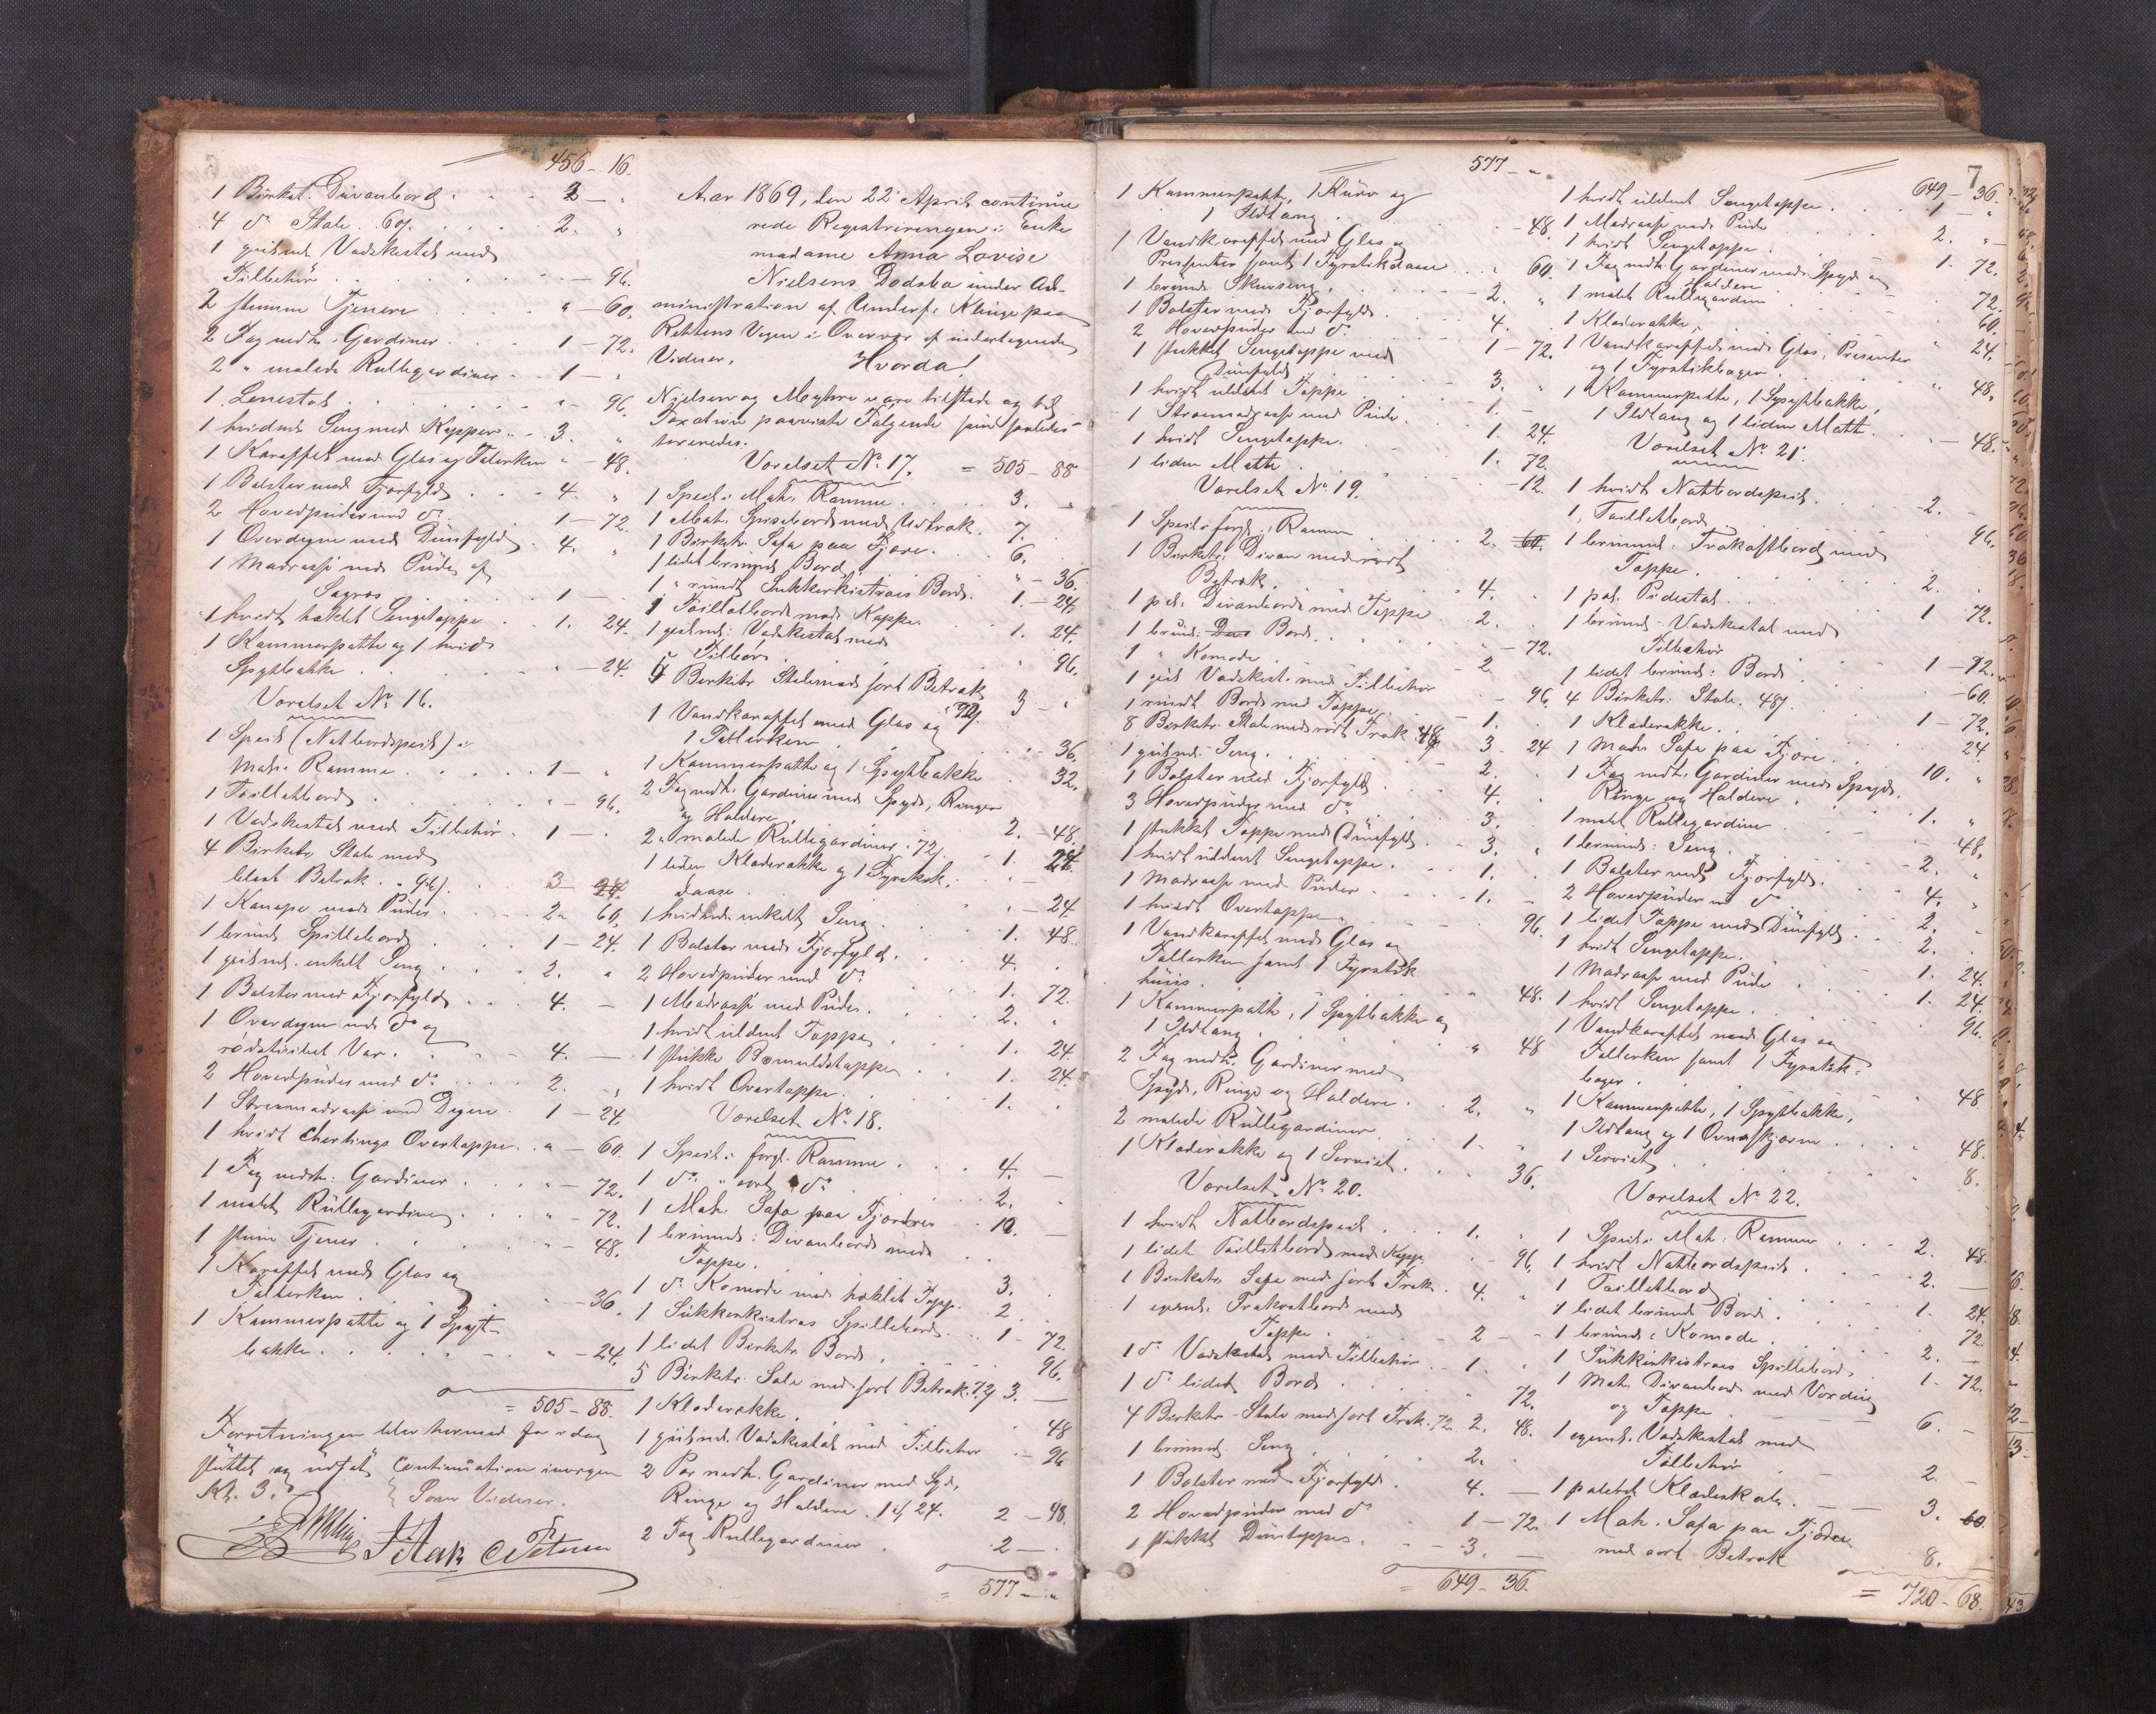 456 - 16.
1 Birket. Divanbord . . . 2 - „
4 do Stole . 60/ . . . 2. „
1 guult Vadskestel med
Tilbehör . . . - 96.
2 stumme Tjenere . . . „ - 60.
2 Fag nedh. Gardiner . . . 1 - 72.
2 „ malede Rullegardiner . . 1 - „
1 Lænestol . . . „ - 96.
1 hvidmt Seng med Kapper . . 3. „
1 Karaffel med Glas og Talerken „ - 48.
1 Bolster med Fjærfyld . . . 4. „
2 Hovedpuder med do . . . 1 - 72.
1 Overdyne med Duunfyld . 4. „
1 Madrasse med Pude af
Søgræs . . . 1 -
1 hvidt hæklet Sengetæppe . . 1. 24.
1 Kammerpotte og 1 hvid
Spytbakke . . . „ - 24.
Værelset No 16.
1 Speil (Natbordspeil) i
Mah. Ramme . . . 1 - „
1 Toiletbord . . . „ - 96.
1 Vadskestel med Tilbehör . 1 - .
4 Birketr. Stole med
blaat Betræk . „ 96/. . 3 - 24.
1 Kanape med Puder . . . 2 „ 60.
1 brunt Spillebord . . . 1 - 24.
1 guulmt. enkelt Seng . . . 2. „
1 Bolster med Fjærfyld . . . 4. -
1 Overdyne med do og
rødstribet Vaar . . . 4. -
2 Hovedpuder med do . . . 2. „
1 Straamadrasse med Dyne . 1 - 24.
1 hvidt Chertings Overtæppe . . „ - 60.
1 Fag nedh: Gardiner . . . „ - 72.
1 malet Rullegardin . . . „ - 72.
1 stum Tjener . . . - 48.
1 Karaffel med Glas og
Tallerken . . . - 36.
1 Kammerpotte og 1 Spyt-
bakke . . . „ - 24.
= 505 - 88.
Forretningen blev hermed for idag
sluttet og udsat til Continuation imorgen
Kl. 3.
Som Vidner.
C Petersen
Aar 1869, den 22 April continue
rede Registreringen i Enke
madame Anna Lovise
Nielsens Dødsbo under Ad-
ministration af Underf. Klinge paa
Rettens Vegne i Overvær af undertegnede
Vidner. Hvorda!
Nielsen og Myhre vare tilstede og til
Taxation paaviste Følgende som saaledes
taxeredes.
Værelset No 17. = 505 - 88
1 Speil i Mah. Ramme . . . 3. „
1 Mah. Spisebord med Udtræk . 7. .
1 Birketr. Sofa paa Fjære . . 6. .
1 lidet brunmt Bord . . . „ - 36.
1 „ rundt Sukkerkistræes Bord . 1. - 24.
1 Toiletbord med Kappe . . 1. 24.
1 guulmt: Vadskestel med
Tilbehör . . . „ 96.
5 Birketr. Stole med sort Betræk 72/. 3 - „
1 Vandkaraffel med Glas og
1 Tallerken . . . - 36.
1 Kammerpotte og 1 Spytbakke . 32.
2 Fag nedh. Gardiner med Spyd, Ringe
og Holdere . . . 2. - 48.
2 „ malede Rullegardiner . 72/. . 1. 24.
1 liden Klæderække og 1 Fyrstik-
daase . . . „ - 24
1 hvidmt. enkelt Seng . . . 1. 48.
1 Bolster med Fjærfyld . . . 4. .
2 Hovedpuder med do . . . 1. 72.
1 Madrasse med Pude . . . 2. „
1 hvidt uldent Tæppe . . . 1. 24.
1 stukke Bomuldstæppe . . 1. 24.
1 hvidt Overtæppe . . . 1. .
Værelset No 18.
1 Speil i forgl. Ramme . . . 4. -
1 do „ sort do . . . 2. .
1 Mah. Sofa paa Fjædre . . 10. -
1 brunmt: Divanbord med
Tæppe . . . 3. .
1 do Komode med hæklet Tæpp. 2 .
1 Sukkerkistræs Spillebord . . 1 - 72.
1 lidet Birketr. Bord . . . 96.
5 Birketr. Stole med sort Betræk . 72/ 3. -
1 Klæderække . . . 48
1 guulmt. Vadskestel med Tilbehör . - 96
2 Par nedh. Gardiner med Spyd,
Ringe og Holdere . 1 if 24. 2 - 48.
2 Fag Rullegardiner . . . 2 - .
= 577 - „
577 - „
1 Kammerpotte, 1 Kurv og
1 Ildtang . . . - 48.
1 Vandkaraffel med Glas og
Presenter samt 1 Fyrstikdaase . „ 60.
1 brunmt. Skruseng . . . 2. „
1 Bolster med Fjærfyld . . . 4. „
2 Hovedpuder med do . . . 1 - 72.
1 stukket Sengetæppe med
Duunfyld . . . 3. „
1 hvidt uldent Tæppe . . . 1. -
1 Straamadrasse med Pude . . 1. 24.
1 hvidt Sengetæppe . . . 1. 72.
1 liden Matte . . . - 12.
Værelset No 19.
1 Speil i forgl. Ramme . . . 2. 60.
1 Birketr. Divan med rødt
Betræk . . . 4. .
1 pol. Divanbord med Tæppe . . 2. .
1 brunt: Bord . . . - 72.
1 „ Komode . . . 2
1 guul Vadskest. med Tilbehör . - 96.
1 rundt Bord med Tæppe . . . 1. .
8 Birketr. Stole med rødt Træk 48/ 3 - 24
1 guulmt. Seng . . . 2. .
1 Bolster med Fjærfyld . . . 4. .
3 Hovedpuder med do . . . 3. .
1 stukket Tæppe med Duunfyld . 3. „
1 hvidt uldent Sengetæppe . . 1. .
1 Madrasse med Puder . . . 1. -
1 hvidt Overtæppe . . . 96.
1 Vandkaraffel med Glas og
Tallerken samt 1 Fyrstik
huus . . . 48.
1 Kammerpotte, 1 Spytbakke og
1 Ildtang . . . „ 48
2 Fag nedh. Gardiner med
Spyd, Ringe og Holdere . . 2. „
2 malede Rullegardiner . . . 1. „
1 Klæderække og 1 Serviet . . 36.
Værelset No 20.
1 hvidt Natbordspeil . . . 1. „
1 lidet Toiletbord med Kappe . - 96.
1 Birketr. Sofa med sort Træk . 4. „
1 egemt. Frokostbord med
Tæppe . . . 2 - -
1 do Vadskestel med Tilbehör . . 1. .
1 do lidet Bord . . . 72.
4 Birketr. Stole med sort Træk . 72. 2. 48.
1 brunmt. Seng . . . 2. .
1 Bolster med Fjærfyld . . . 4. -
2 Hovedpuder med do . . . 1 - 72.
1 stukket Duuntæppe . . . 3. -
= 649 - 36.
7
649 - 36.
1 hvidt uldent Sengetæppe . . 1 - „
1 Madrasse med Pude . . . 2. „ -
1 hvidt Sengetæppe . . . 1. 72.
1 Fag nedh. Gardiner med Spyd og
Holdere . . . 72.
1 malet Rullegardin . . . 60.
1 Klæderække . . . „ 24.
1 Vandkaraffel med Glas, Presenter
og 1 Fyrstikbæger . . . „ 48.
1 Kammerpotte, 1 Spytbakke,
1 Ildtang og 1 liden Matte . . - 48.
Værelset No 21.
1 hvidt Natbordspeil . . . 2. -
1 Toiletbord . . . 96.
1 brunmt: Frokostbord med
Tæppe . . . 2. .
1 pol. Pidestal . . . 1 72.
1 brunmt. Vadskestel med
Tilbehör . . . 1 - 72.
1 lidet brunt: Bord . . . - 60.
4 Birketr: Stole . 48/. . . 1 - 72.
1 Klæderække . . . 24.
1 Mah. Sofa paa Fjære . . . 10. „
1 Fag nedh: Gardiner med Spyd,
Ringe og Holdere . . . 1. „
1 malet Rullegardin . . . - 48.
1 brunmt: Seng . . . 2. „
1 Bolster med Fjærfyld . . . 4. „
2 Hovedpuder med do . . . 2. .
1 lidet Tæppe med Duunfyld . . 2. .
1 hvidt Sengetæppe . . . 1. 24.
1 Madrasse med Pude . . . 1. 24.
1 hvidt Sengetæppe . . . 96.
1 Vandkaraffel med Glas og
Tallerken samt 1 Fyrstik-
bæger . . . 48.
1 Kammerpotte, 1 Spytbakke,
1 Ildtang og 1 Ovnsskjærm . . 48.
1 Serviet . . . 8.
Værelset No 22.
1 Speil i Mah: Ramme . . . 2. 48.
1 hvidt Natbordspeil . . . 2. -
1 Toiletbord . . .
1 lidet brunmt Bord . . . 1. 24.
1 brunmt: Komode . . . 72.
1 Sukkerkistræes Spillebord . . 2. -
1 Mah. Divanbord med Voxdug 1. 72.
og Tæppe . . . 6. -
1 egemt. Vadskestel med
Tilbehör . . . 2. -
1 paletet Klædeskab . - - 3. 60.
1 Mah. Sofa paa Fjædre
med sort Betræk . . . 8. -
= 720 - 68.